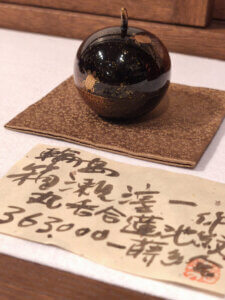 輪島
箱瀬淳一作
丸香合蓮池紋
363,000-蒔絵